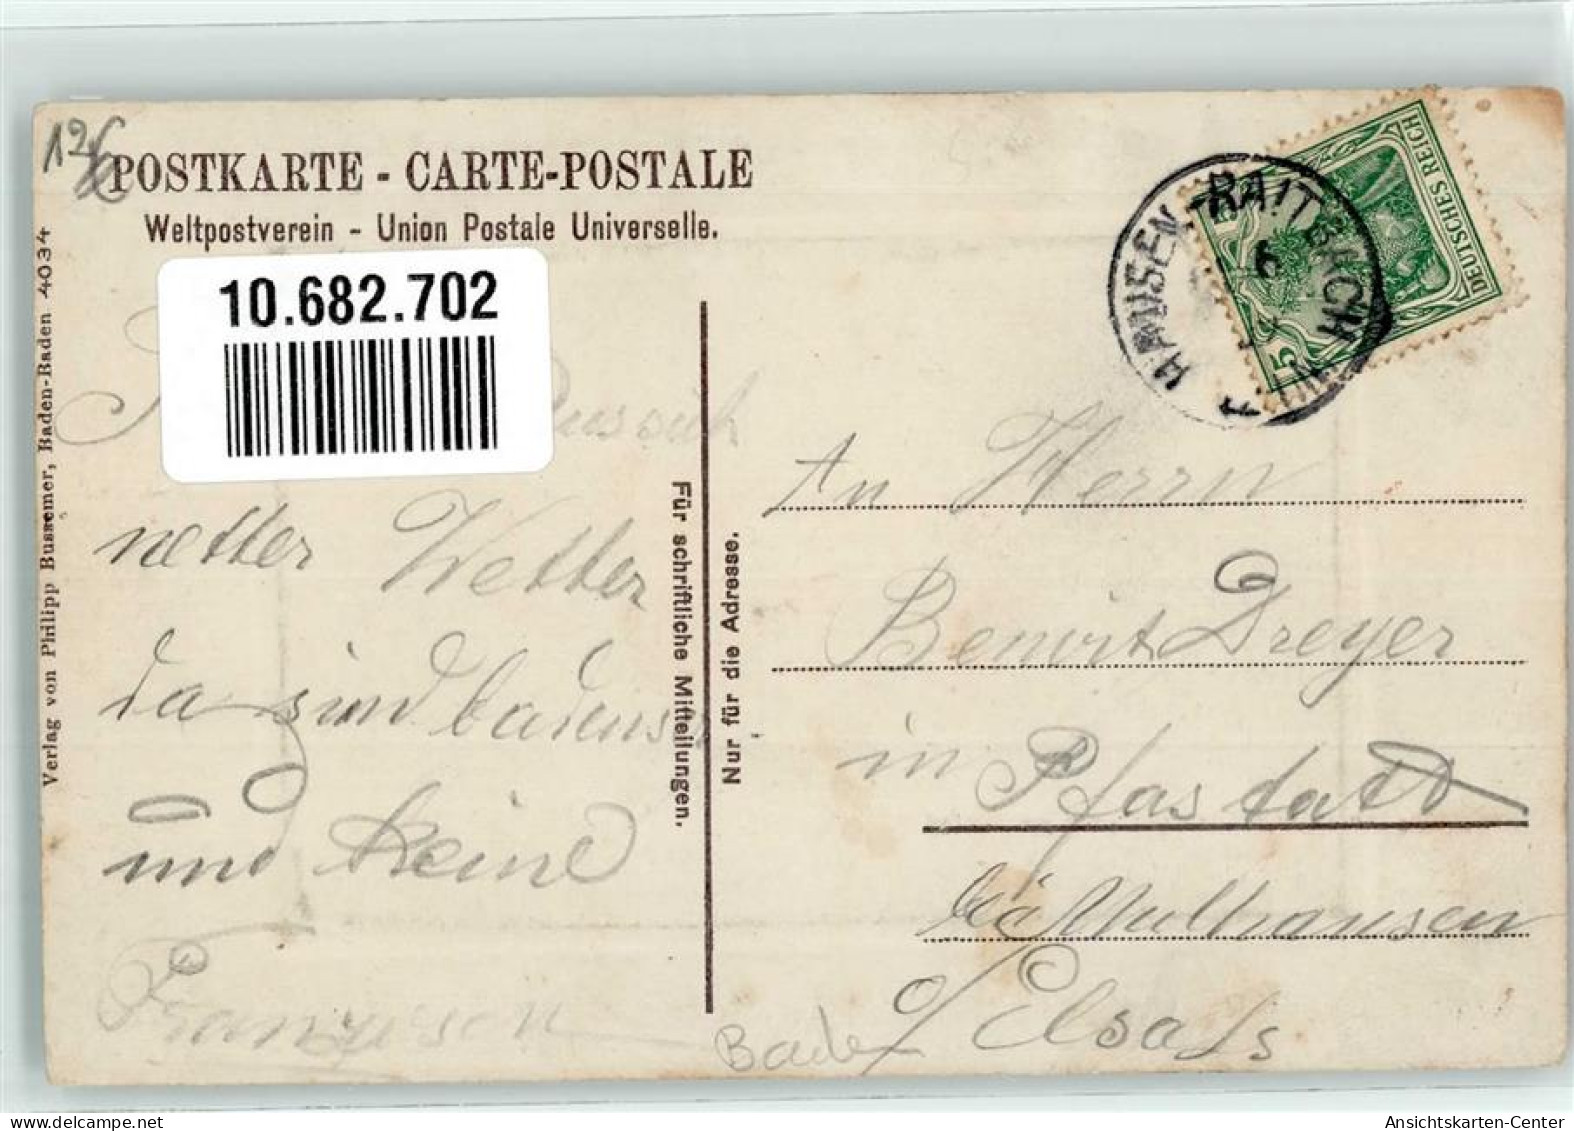 12
POSTKARTE - CARTE-POSTALE
Weltpostverein - Union Postale Universelle.
10.682.702
Verlag von Philipp Bussemer, Baden-Baden 4034
netter Wetter
da sind badens
und keine
Franzosen
Für schriftliche Mitteilungen.
Nur für die Adresse.
DEUTSCHES REICH
5
HAUSEN-RAITBACH
6
An Herrn
Benoit Dreyer
in Pfastatt
bei Mulhausen
o/ Elsass
Baden
Ansichtskarten-Center